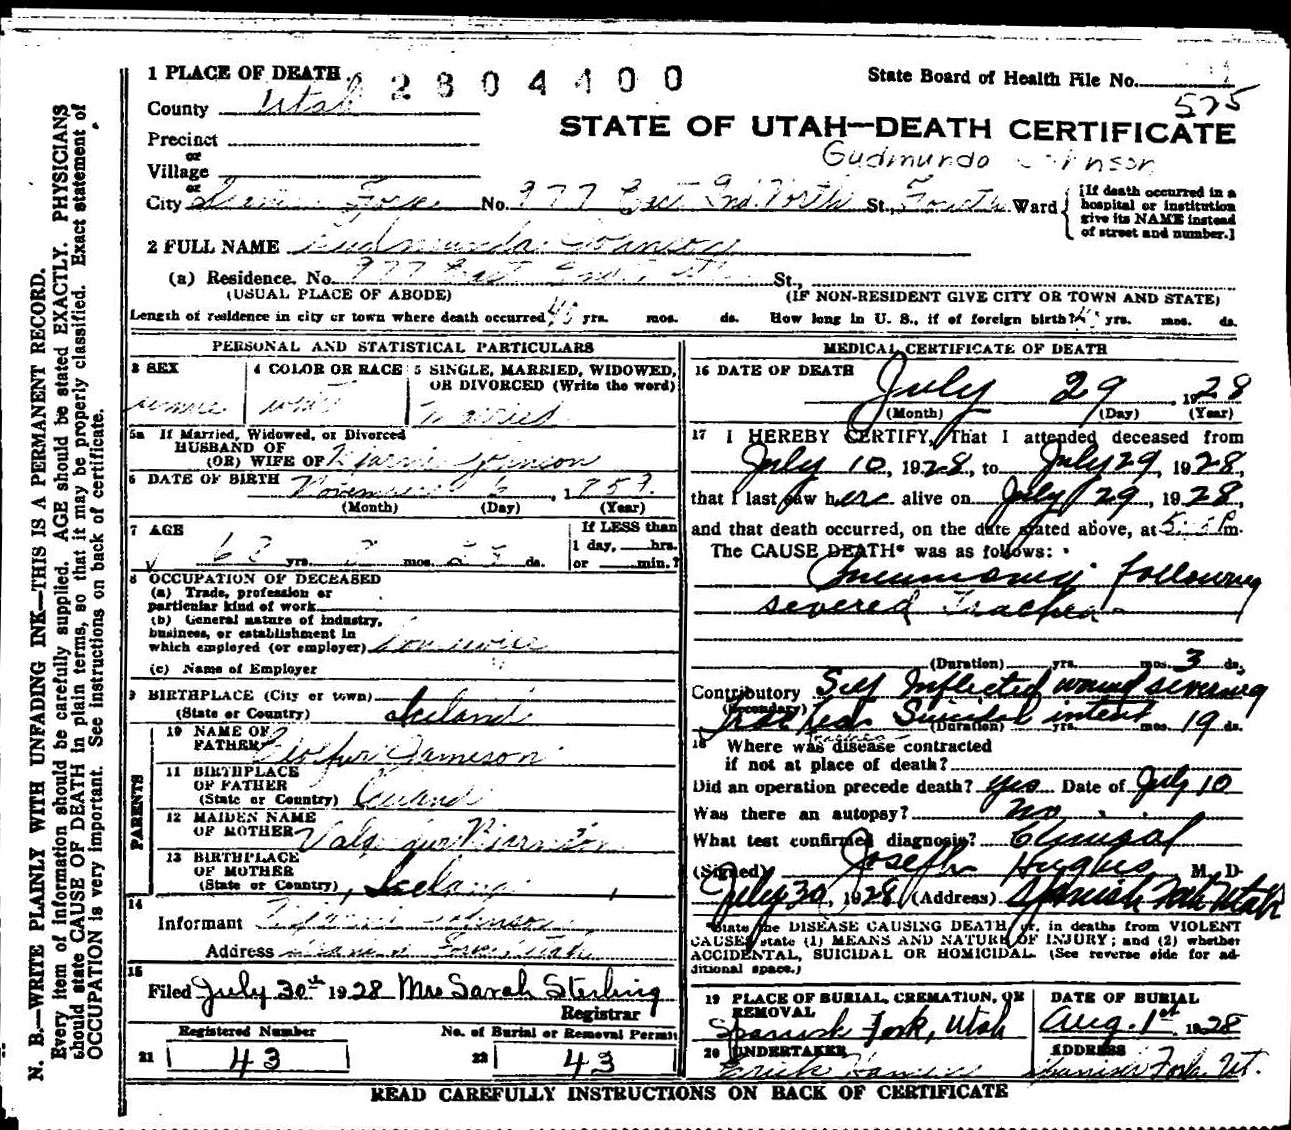 N. B.—WRITE PLAINLY WITH UNFADING INK—THIS IS A PERMANENT RECORD.
Every item of information should be carefully supplied. AGE should be stated EXACTLY. PHYSICIANS
should state CAUSE OF DEATH in plain terms, so that it may be properly classified. Exact statement of
OCCUPATION is very important. See instructions on back of certificate.
1 PLACE OF DEATH
2804400
State Board of Health File No.
575
County Utah
STATE OF UTAH—DEATH CERTIFICATE
Precinct
or
Gudmundo
Village
or
City Fork No. 977 East 2nd North St., Fourth Ward
[If death occurred in a
hospital or institution
give its NAME instead
of street and number.]
2 FULL NAME Gudmunda Johnson
(a) Residence. No. 977 East St.,
(USUAL PLACE OF ABODE) (IF NON-RESIDENT GIVE CITY OR TOWN AND STATE)
Length of residence in city or town where death occurred yrs. mos. ds. How long in U. S., if of foreign birth? yrs. mos. ds.
PERSONAL AND STATISTICAL PARTICULARS
3 SEX
4 COLOR OR RACE
5 SINGLE, MARRIED, WIDOWED,
OR DIVORCED (Write the word)
white
married
5a If Married, Widowed, or Divorced
HUSBAND OF
(OR) WIFE OF Johnson
6 DATE OF BIRTH November
(Month) (Day) (Year)
7 AGE
If LESS than
1 day, hrs.
or min.?
yrs. mos. ds.
8 OCCUPATION OF DECEASED
(a) Trade, profession or
particular kind of work
(b) General nature of industry,
business, or establishment in
which employed (or employer) housewife
(c) Name of Employer
9 BIRTHPLACE (City or town)
(State or Country) Iceland
PARENTS
10 NAME OF
FATHER Jameson
11 BIRTHPLACE
OF FATHER
(State or Country) Iceland
12 MAIDEN NAME
OF MOTHER
13 BIRTHPLACE
OF MOTHER
(State or Country) Iceland
14
Informant Johnson
Address Fork, Utah
15
Filed July 30th 1928 Mrs Sarah Sterling
Registrar
Registered Number No. of Burial or Removal Permit
21 43 22 43
MEDICAL CERTIFICATE OF DEATH
16 DATE OF DEATH
July 29, 1928
(Month) (Day) (Year)
17 I HEREBY CERTIFY, That I attended deceased from
July 10, 1928, to July 29, 1928,
that I last saw her alive on July 29, 1928
and that death occurred, on the date stated above, at m.
The CAUSE DEATH* was as follows:
Pneumonia following
severed Trachea
(Duration) yrs. mos. 3 ds.
Contributory Self Inflicted wound severing
(Secondary)
Trachea Suicidal intent
(Duration) yrs. mos. 19 ds.
18 Where was disease contracted
if not at place of death?
Did an operation precede death? yes Date of July 10
Was there an autopsy? no
What test confirmed diagnosis? Clinical
(Signed) Joseph Hughes M. D.
July 30, 1928 (Address) Spanish Fork Utah
*State the DISEASE CAUSING DEATH or, in deaths from VIOLENT
CAUSES state (1) MEANS AND NATURE OF INJURY; and (2) whether
ACCIDENTAL, SUICIDAL OR HOMICIDAL. (See reverse side for ad-
ditional space.)
19 PLACE OF BURIAL, CREMATION, OR
REMOVAL
Spanish Fork, Utah
DATE OF BURIAL
Aug. 1st 1928
20 UNDERTAKER
ADDRESS
Spanish Fork, Ut.
READ CAREFULLY INSTRUCTIONS ON BACK OF CERTIFICATE